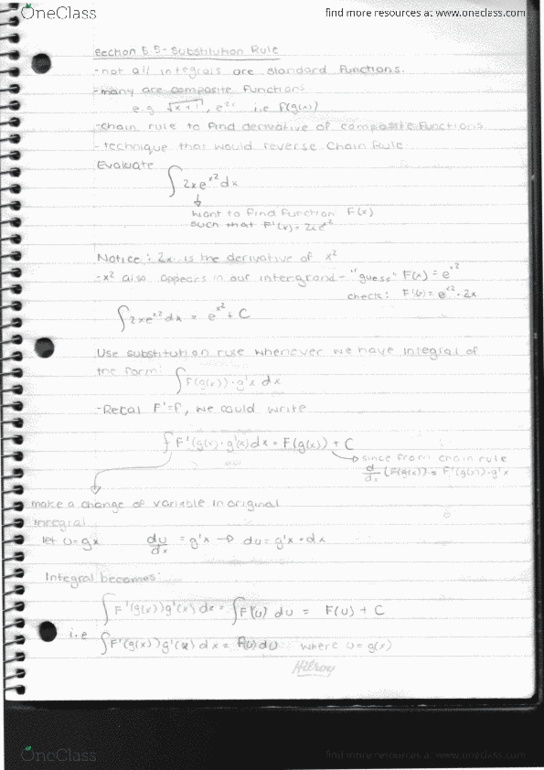 OneClass
find more resources at www.oneclass.com
Section 5.5 - Substitution Rule
-not all integrals are standard functions.
-many are composite functions
e.g √x+1, e²ˣ i.e f(g(x))
-chain rule to find derivative of composite functions
-technique that would reverse Chain Rule
Evaluate
∫2xeˣ²dx
↓
want to find function F(x)
such that F'(x)=2xeˣ²
Notice: 2x is the derivative of x²
-x² also appears in our intergrand - "guess" F(x) = eˣ²
check: F'(x) = eˣ²·2x
∫2xeˣ²dx = eˣ² + C
Use substitution rule whenever we have integral of
the form: ∫F(g(x))·g'x dx
-Recal F'=f, we could write
∫F'(g(x)·g'(x)dx = F(g(x)) + C
→ since from chain rule
d/dx (F(g(x)) = F'(g(x))·g'x
make a change of variable in original
integral
let u=gx du/dx = g'x → du= g'x·dx
Integral becomes:
∫F'(g(x))g'(x) dx = ∫F'(u) du = F(u) + C
i.e ∫F'(g(x))g'(x) dx = F(u)du where u=g(x)
Hilroy
OneClass
find more resources at www.oneclass.com